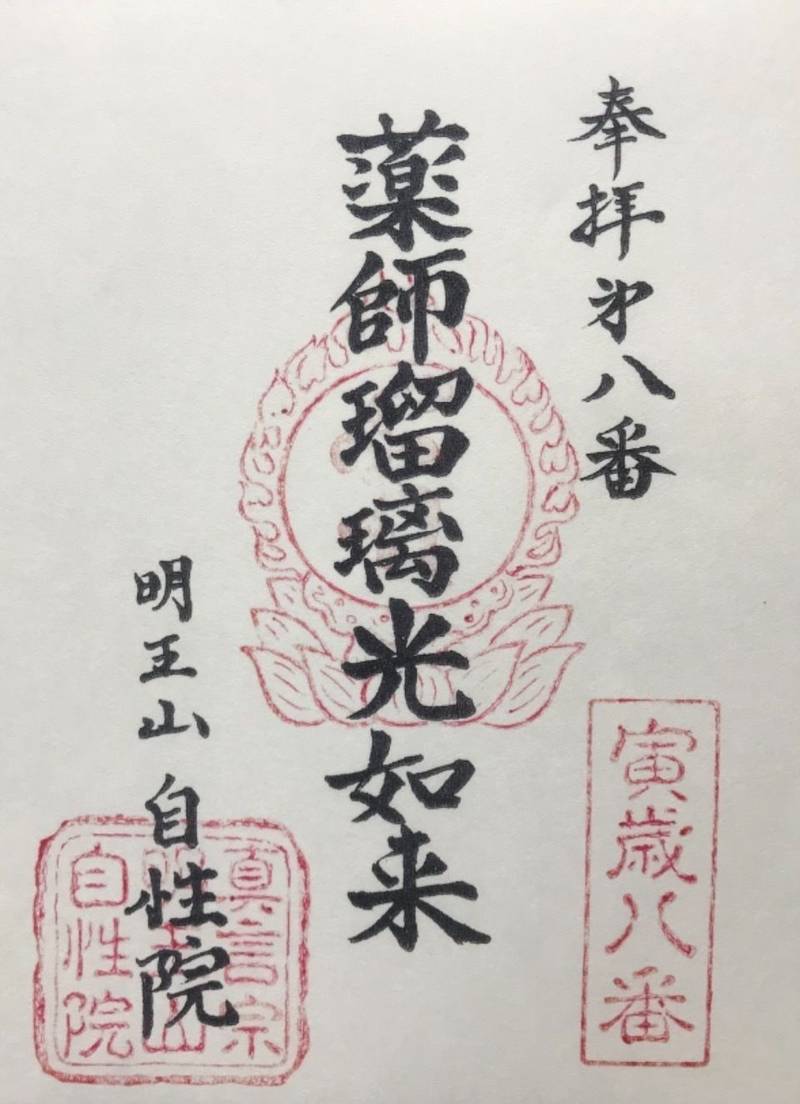 奉拝第八番
寅歳八番
薬師瑠璃光如来
明王山 自性院
真言宗
明王山
自性院